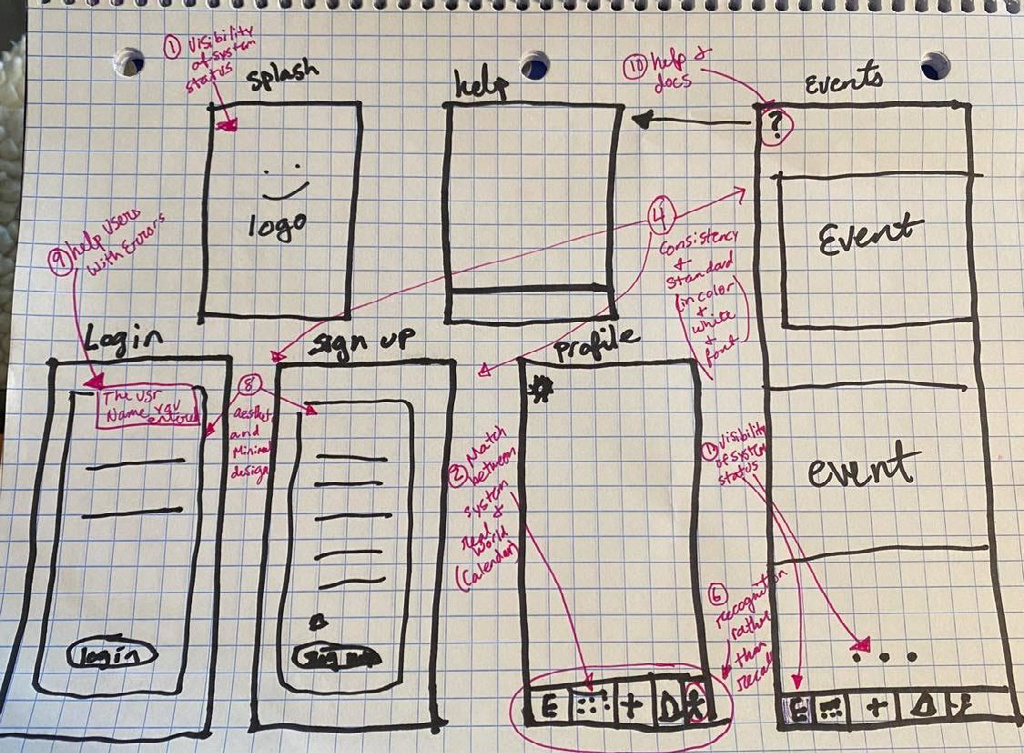 ① Visibility
of system
status
splash
logo
help
⑩ help &
docs
Events
?
Event
event
④
Consistency
&
standard
(in color
+
white
+
font)
⑨ help users
with Errors
Login
The usr
Name you
entered
login
⑧
aesthetic
and
Minimal
design
sign up
profile
② Match
between
system &
real
world
(Calender)
E
+
① visibility
of system
status
⑥
recognition
rather
than
recall
...
E
+